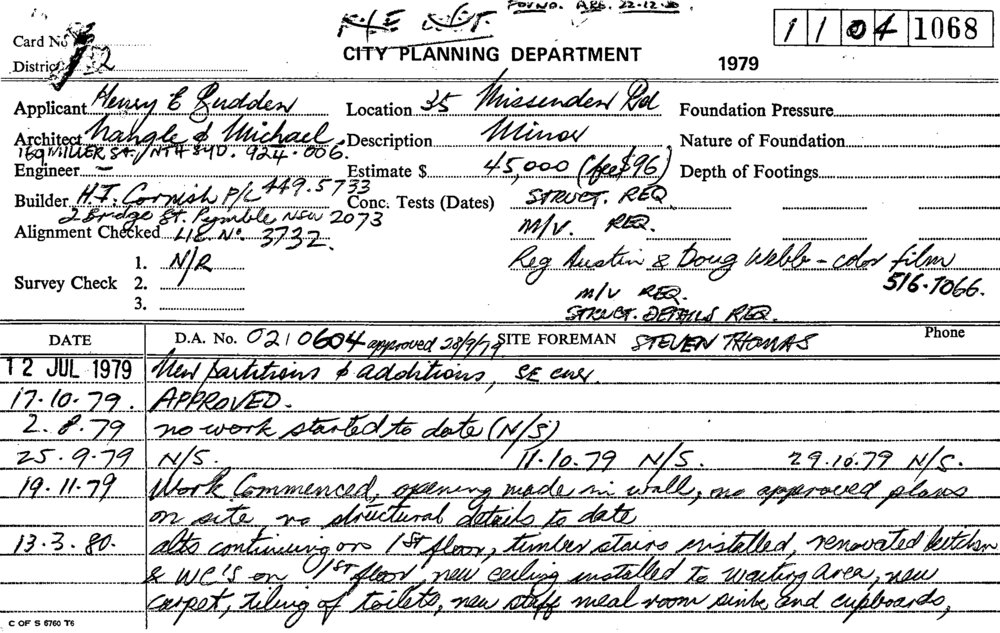 FOY NO. APR. 22-12-80.
Card No
CITY PLANNING DEPARTMENT
1979
1 1 04 1068
District 2
Applicant Henry E Budden Location 35 Missenden Rd Foundation Pressure
Architect Nangle & Michael, Description Minor Nature of Foundation
169 MILLER ST. NTH SYD. 924-006.
Engineer — Estimate $ 45,000 (fee $96) Depth of Footings
Builder H.J. Cornish P/L 449.5733 Conc. Tests (Dates) STRUCT. REQ
2 Bridge St. Pymble NSW 2073
Alignment Checked LIC. No. 3732. M/V. REQ.
Survey Check 1. N/R Reg Austin & Doug Webb - color film
2. 516-7066.
3. M/V REQ.
STRUCT. DETAILS REQ.
DATE D.A. No. 0210604 approved 28/9/79 SITE FOREMAN STEVEN THOMAS Phone
12 JUL 1979 New partitions & additions, SE cnr.
17.10.79. APPROVED.
2.8.79 no work started to date (N/S)
25.9.79 N/S. 11.10.79 N/S. 29.10.79 N/S.
19.11.79 Work Commenced, opening made in wall, no approved plans
on site no structural details to date
13.3.80. alts continuing on 1st floor, timber stairs installed, renovated kitchen
& WC'S on 1st floor, new ceiling installed to waiting area, new
carpet, tiling of toilets, new staff meal room sink and cupboards,
C OF S 6760 T6